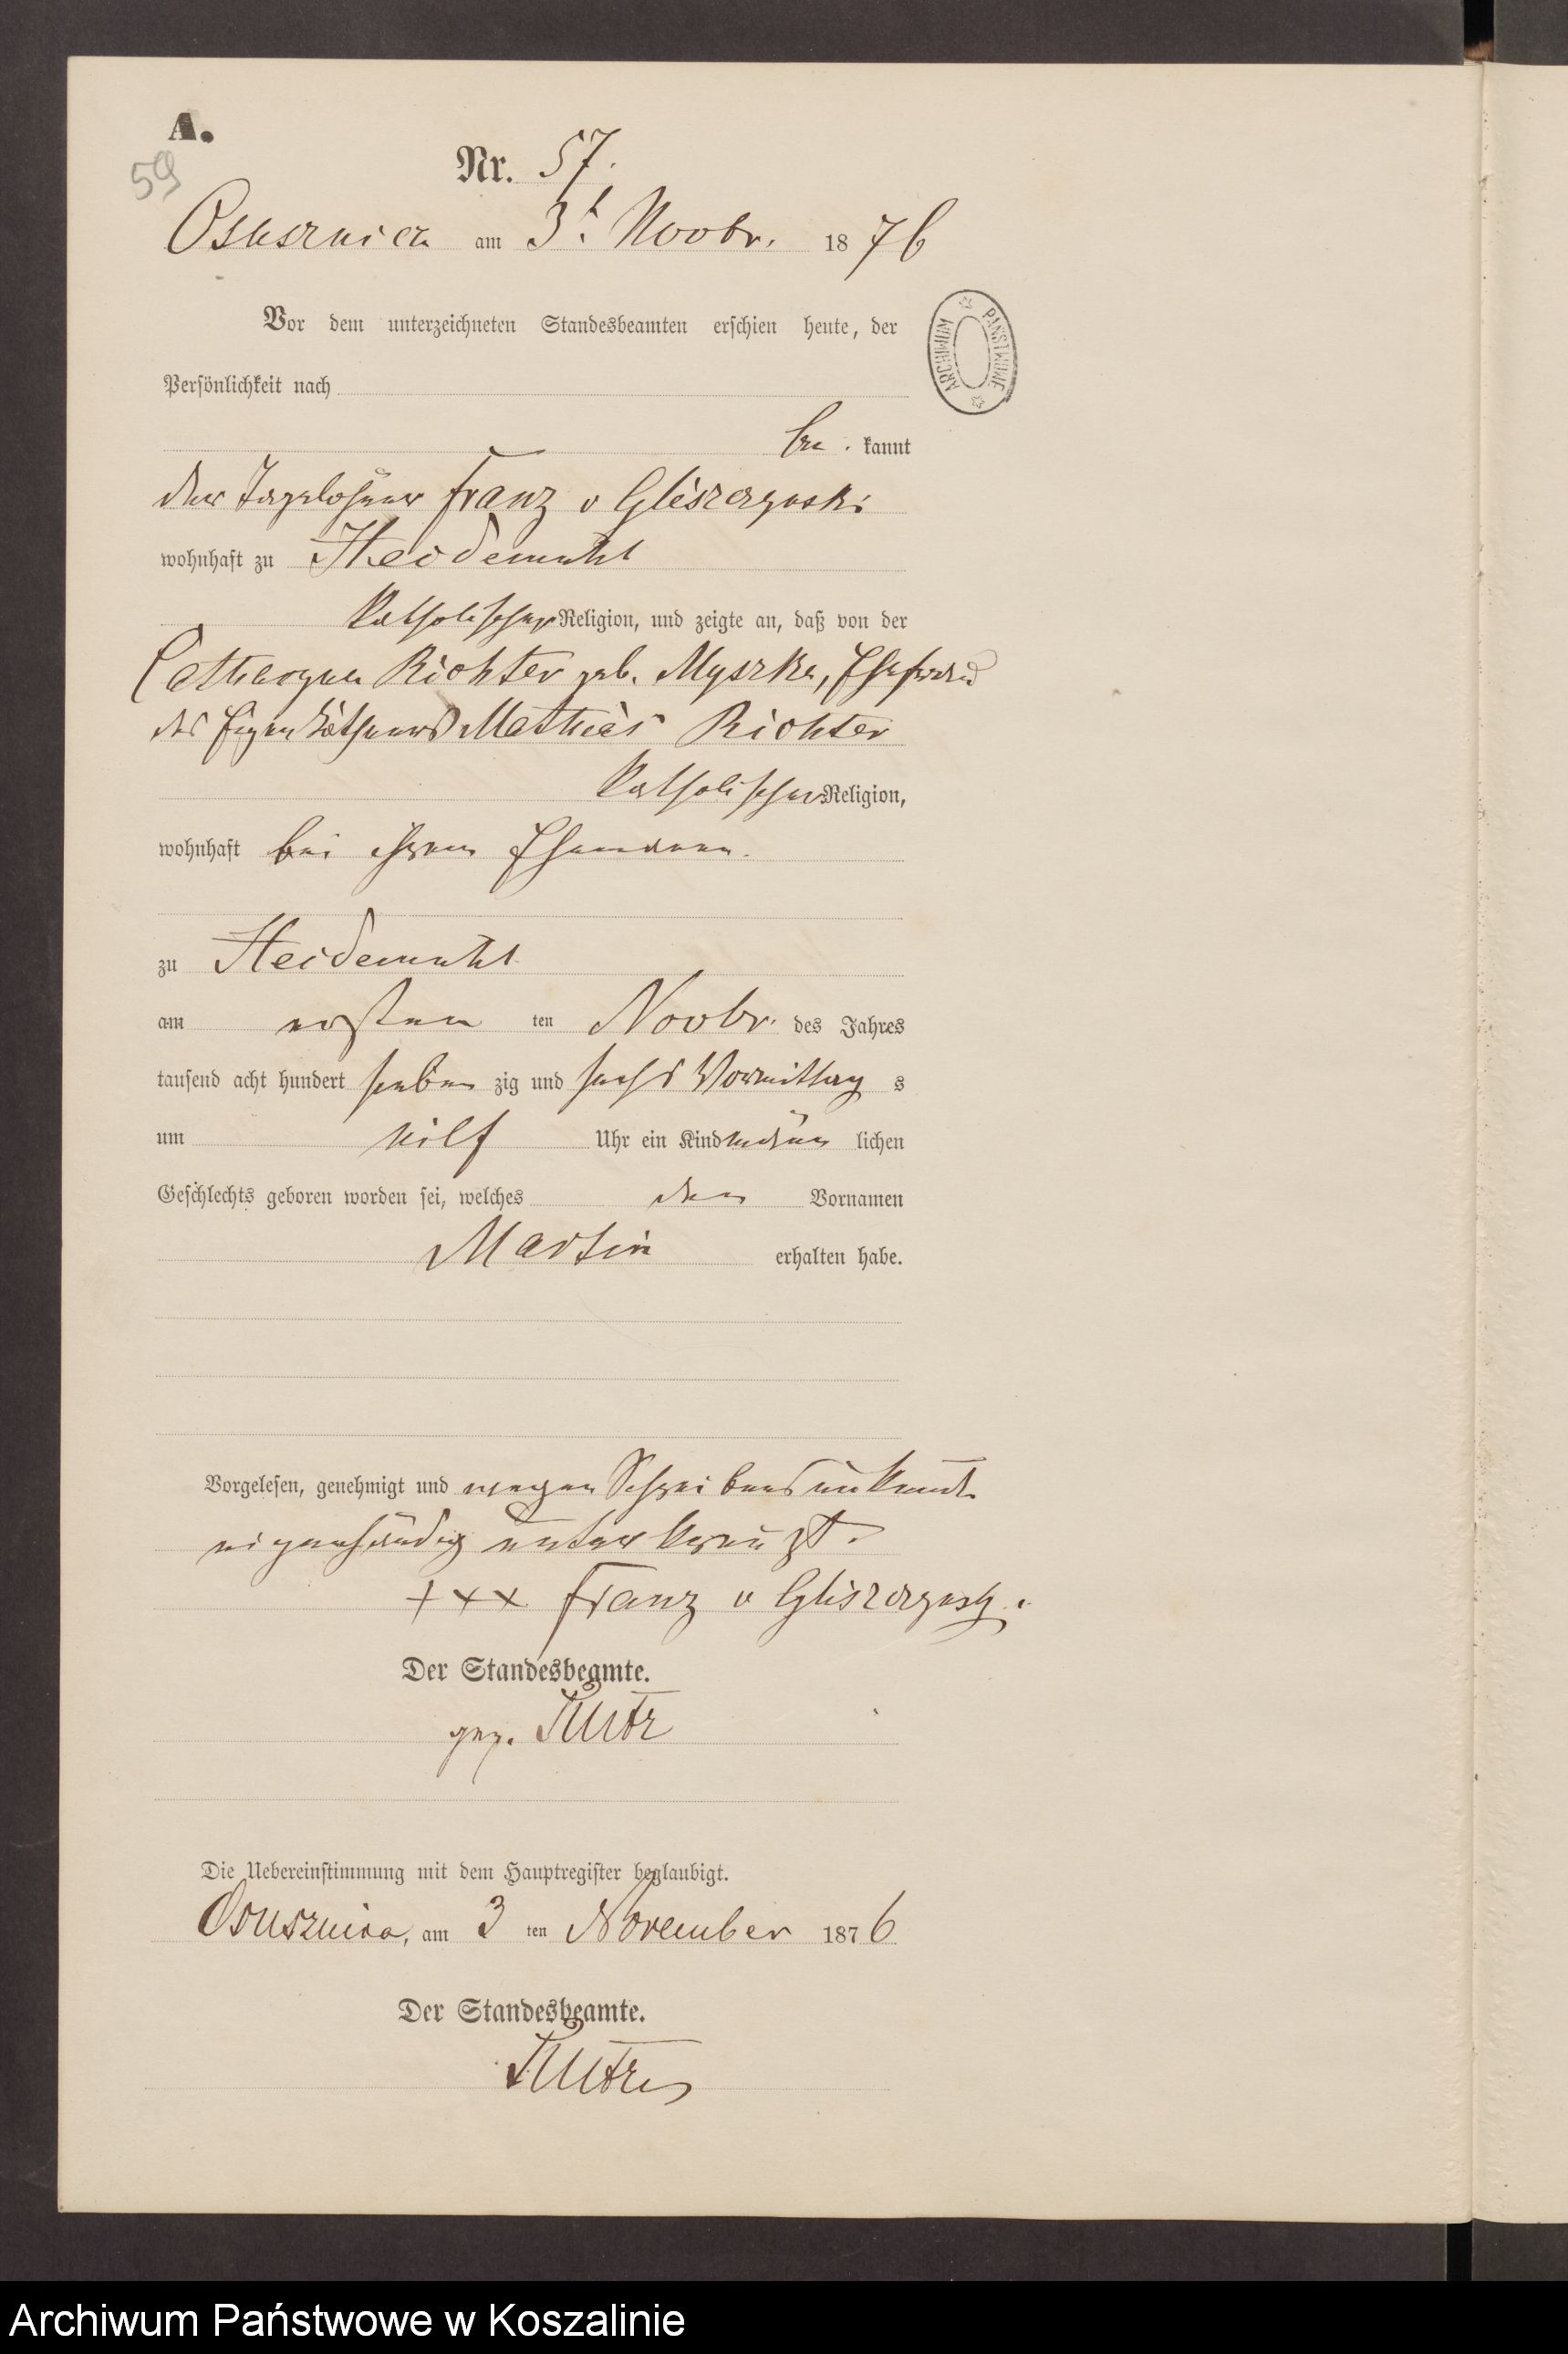 A.
59
Nr. 57.
Osusznica am 3t. Novbr. 1876
Vor dem unterzeichneten Standesbeamten erschien heute, der
Persönlichkeit nach
be kannt
der Tagelöhner Franz v Gliszczynski
wohnhaft zu Heidemühl
katholischer Religion, und zeigte an, daß von der
Catharyna Richter geb. Myszka, Ehefrau
des Eigenkäthners Mathias Richter
katholischer Religion,
wohnhaft bei ihrem Ehemann.
zu Heidemühl
am ersten ten Novbr. des Jahres
tausend acht hundert sieben zig und sechs Vormittag s
um eilf Uhr ein Kind männ lichen
Geschlechts geboren worden sei, welches den Vornamen
Martin erhalten habe.
Vorgelesen, genehmigt und wegen Schreibensunkunde
eigenhändig unterkreuzt.
+++ Franz v Gliszczynski.
Der Standesbeamte.
gez.
Die Uebereinstimmung mit dem Hauptregister beglaubigt.
Osusznica, am 3 ten November 1876
Der Standesbeamte.
ARCHIWUM PAŃSTWOWE
Archiwum Państwowe w Koszalinie